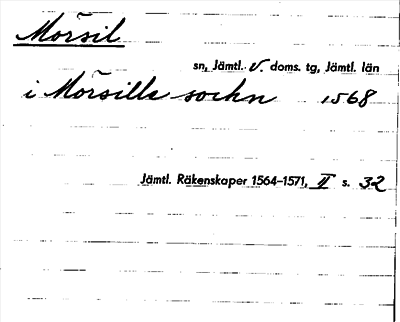 Mörsil
sn, Jämtl. v. doms. tg, Jämtl. län
i Mörsille sochn 1568
Jämtl. Räkenskaper 1564–1571, II s. 32